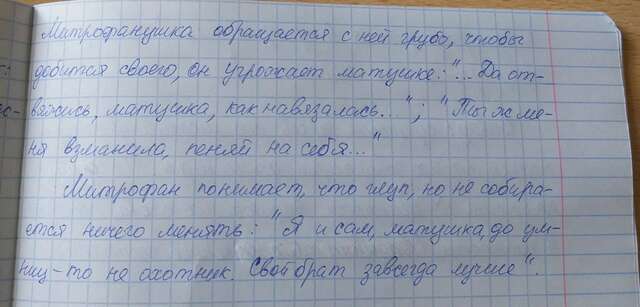 Митрофанушка обращается с ней грубо, чтобы
добится своего, он угрожает матушке: "... Да от-
вяжись, матушка, как навязалась..."; "Ты ж ме-
ня взманила, пеняй на себя..."
Митрофан понимает, что глуп, но не собира-
ется ничего менять: "Я и сам, матушка, до ум-
ниц-то не охотник. Свой брат завсегда лучше".